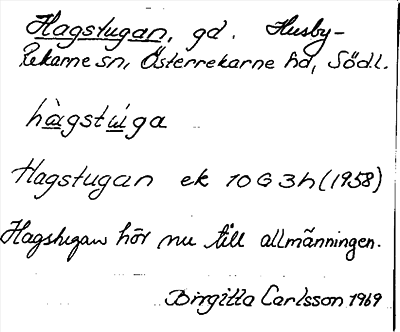 Hagstugan, gd. Husby-
Rekarne sn, Österrekarne hd, Södl.
hàgstùiga
Hagstugan ek 10G3h (1958)
Hagstugan hör nu till allmänningen.
Birgitta Carlsson 1969